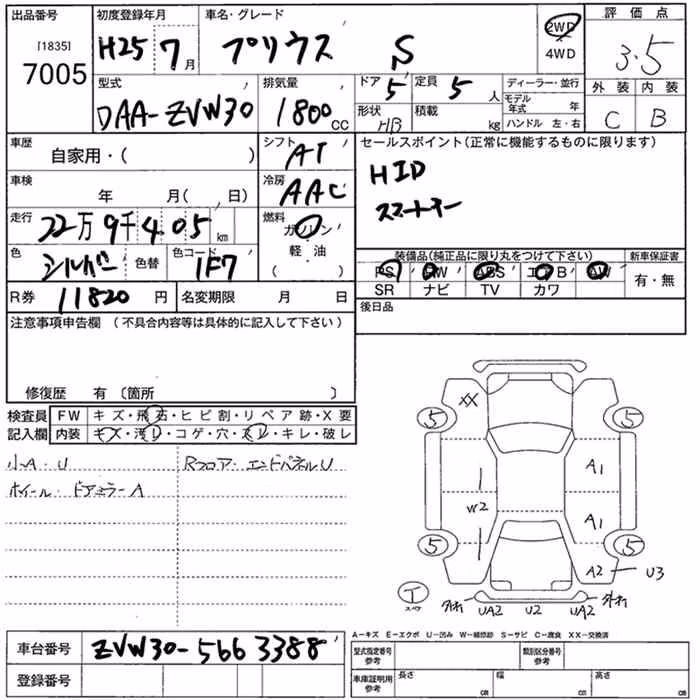 出品番号 初度登録年月 車名・グレード 2WD 評価点
[1835] H25 7月 プリウス S 4WD 3.5
7005
型式 排気量 ドア 5 定員 5人 ディーラー・並行 外装 内装
DAA-ZVW30 1800cc 形状 HB 積載 kg モデル年式 年 C B
ハンドル 左・右
車歴 シフト セールスポイント(正常に機能するものに限ります)
自家用・( ) AT HID
車検 冷房 スマートキー
年 月( , 日) AAC
走行 22万9千405km 燃料 ガソリン
軽・油
( )
色 シルバー 色替 色コード 1F7
装備品(純正品に限り丸をつけて下さい) 新車保証書
PS PW ABS エアB AW 有・無
SR ナビ TV カワ
R券 11820円 名変期限 月 日 後日品
注意事項申告欄 (不具合内容等は具体的に記入して下さい)
修復歴 有 〔箇所 〕
検査員 FW キズ・飛石・ヒビ割・リペア跡・X要
記入欄 内装 キズ・汚レ・コゲ・穴・スレ・キレ・破レ
小A・U Rフロア・エンドパネルU
ホイール・ドアミラーA
XX
5 5
A1
W2 A1
5 5
A2 U3
T スペア
UA2 U2 UA2
A-キズ E-エクボ U-凹み W-補修跡 S-サビ C-腐食 XX-交換済
車台番号 ZVW30-5663388
登録番号
型式指定番号 参考 類別区分番号 参考
車庫証明用 参考 長さ cm 幅 cm 高さ cm